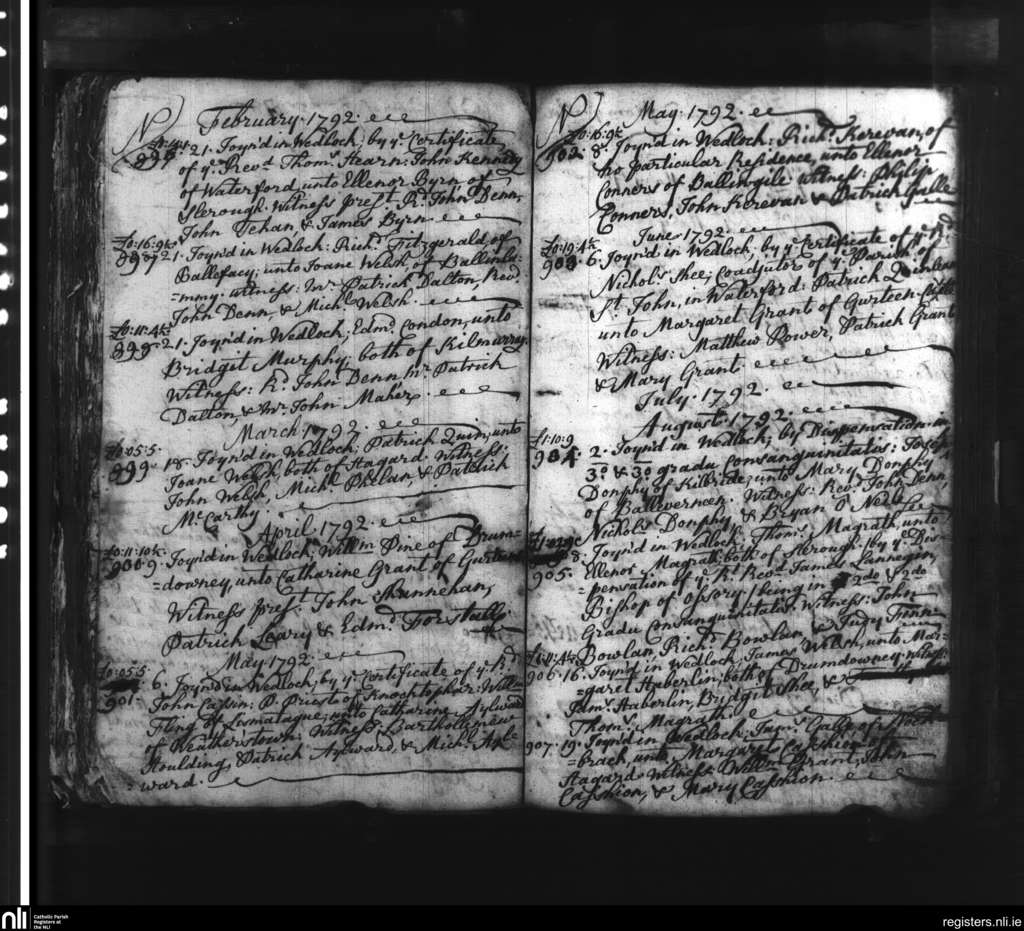 No February. 1792.
21. Joyn'd in Wedlock; by ye. Certificate
896
of ye. Revd. Thoms. Hearn: John Kennedy
of Waterford, unto Ellenor Byrn of
Slerough. Witness prest. Rd. John Denn,
John Tehan, & James Byrn.
£0:16:9½
897 21. Joyn'd in Wedlock: Richd. Fitzgerald, of
Ballefacy; unto Joane Welsh, of Ballinlu=
=mmy. witness: Mr. Patrick Dalton, Revd.
John Denn, & Michl. Welsh.
£0:11:4½
898 21. Joyn'd in Wedlock; Edmd. Condon, unto
Bridgit Murphy; both of Kilmurry.
Witness: Rd. John Denn, Mr. Patrick
Dalton, & Mr. John Maher.
March 1792.
£0:05:5.
899 18. Joyn'd in Wedlock; Patrick Quin, unto
Joane Welsh, both of Hagard. Witness:
John Welsh, Michl. Phelan, & Patrick
McCarthy.
April. 1792.
£0:11:10½
900 9. Joyn'd in Wedlock; Willm. Dine of Drum=
=downey, unto Catharine Grant of Gurteen
Witness prest. John Shunnehan,
Patrick Leary & Edmd. Forstall.
May 1792.
£0:05:5
6. Joyn'd in Wedlock, by ye. Certificate of ye. Rd.
901.
John Cassin: P. Priest of Knocktopher: Willm.
Fling of Lismatague, unto Catharine Aylward
of Weatherstown. Witness: Bartholomew
Houlding, Patrick Aylward, & Michl. Ayl=
=ward.
No May. 1792.
£0:16:9½
902. 8. Joyn'd in Wedlock: Richd. Kerevan, of
no particular Residence, unto Ellenor
Conners of Ballingile witness: Philip
Conners, John Kerevan & Patrick
June 1792.
£0:19:4½
903. 6. Joyn'd in Wedlock, by ye. Certificate of ye. Rd.
Nichols. Shee; Coadjutor of ye. Parish of
St. John, in Waterford: Patrick Quinlan
unto Margaret Grant of Gurteen
Witness: Matthew Power, Patrick Grant
& Mary Grant
July. 1792.
August. 1792.
£1:10:9
904. 2. Joyn'd in Wedlock; by Dispensation in
3o. & 3o gradu Consanguinitatis: Joseph
Donphy of Kilbride, unto Mary Donphy
of Balleverneen. Witness: Revd. John Denn,
Nichols. Donphy, & Bryan O Neill
8. Joyn'd in Wedlock; Thoms. Magrath, unto
905. Ellenor Magrath, both of Slerough: by ye. Dis=
=pensation of ye. Rt. Revd. James Lannegin,
Bishop of Ossory; being in 2do & 2do
Gradu Consanguinitatis. Witness: John
Bowlan, Richd. Bowlan, & Judy
£0:11:4½
906. 16. Joyn'd in Wedlock; James Welsh, unto Mar=
=garet Haberlin; both of Drumdowney. witness:
Jams. Haberlin, Bridgit Shee, &
Thoms. Magrath.
907. 19. Joyn'd in Wedlock; Jams. Galle, of
=brack, unto Margaret Casshion of
Hagard. Witness: Willm. Grant, John
Casshion, & Mary Casshion.
nli
Catholic Parish
Registers at
the NLI
registers.nli.ie